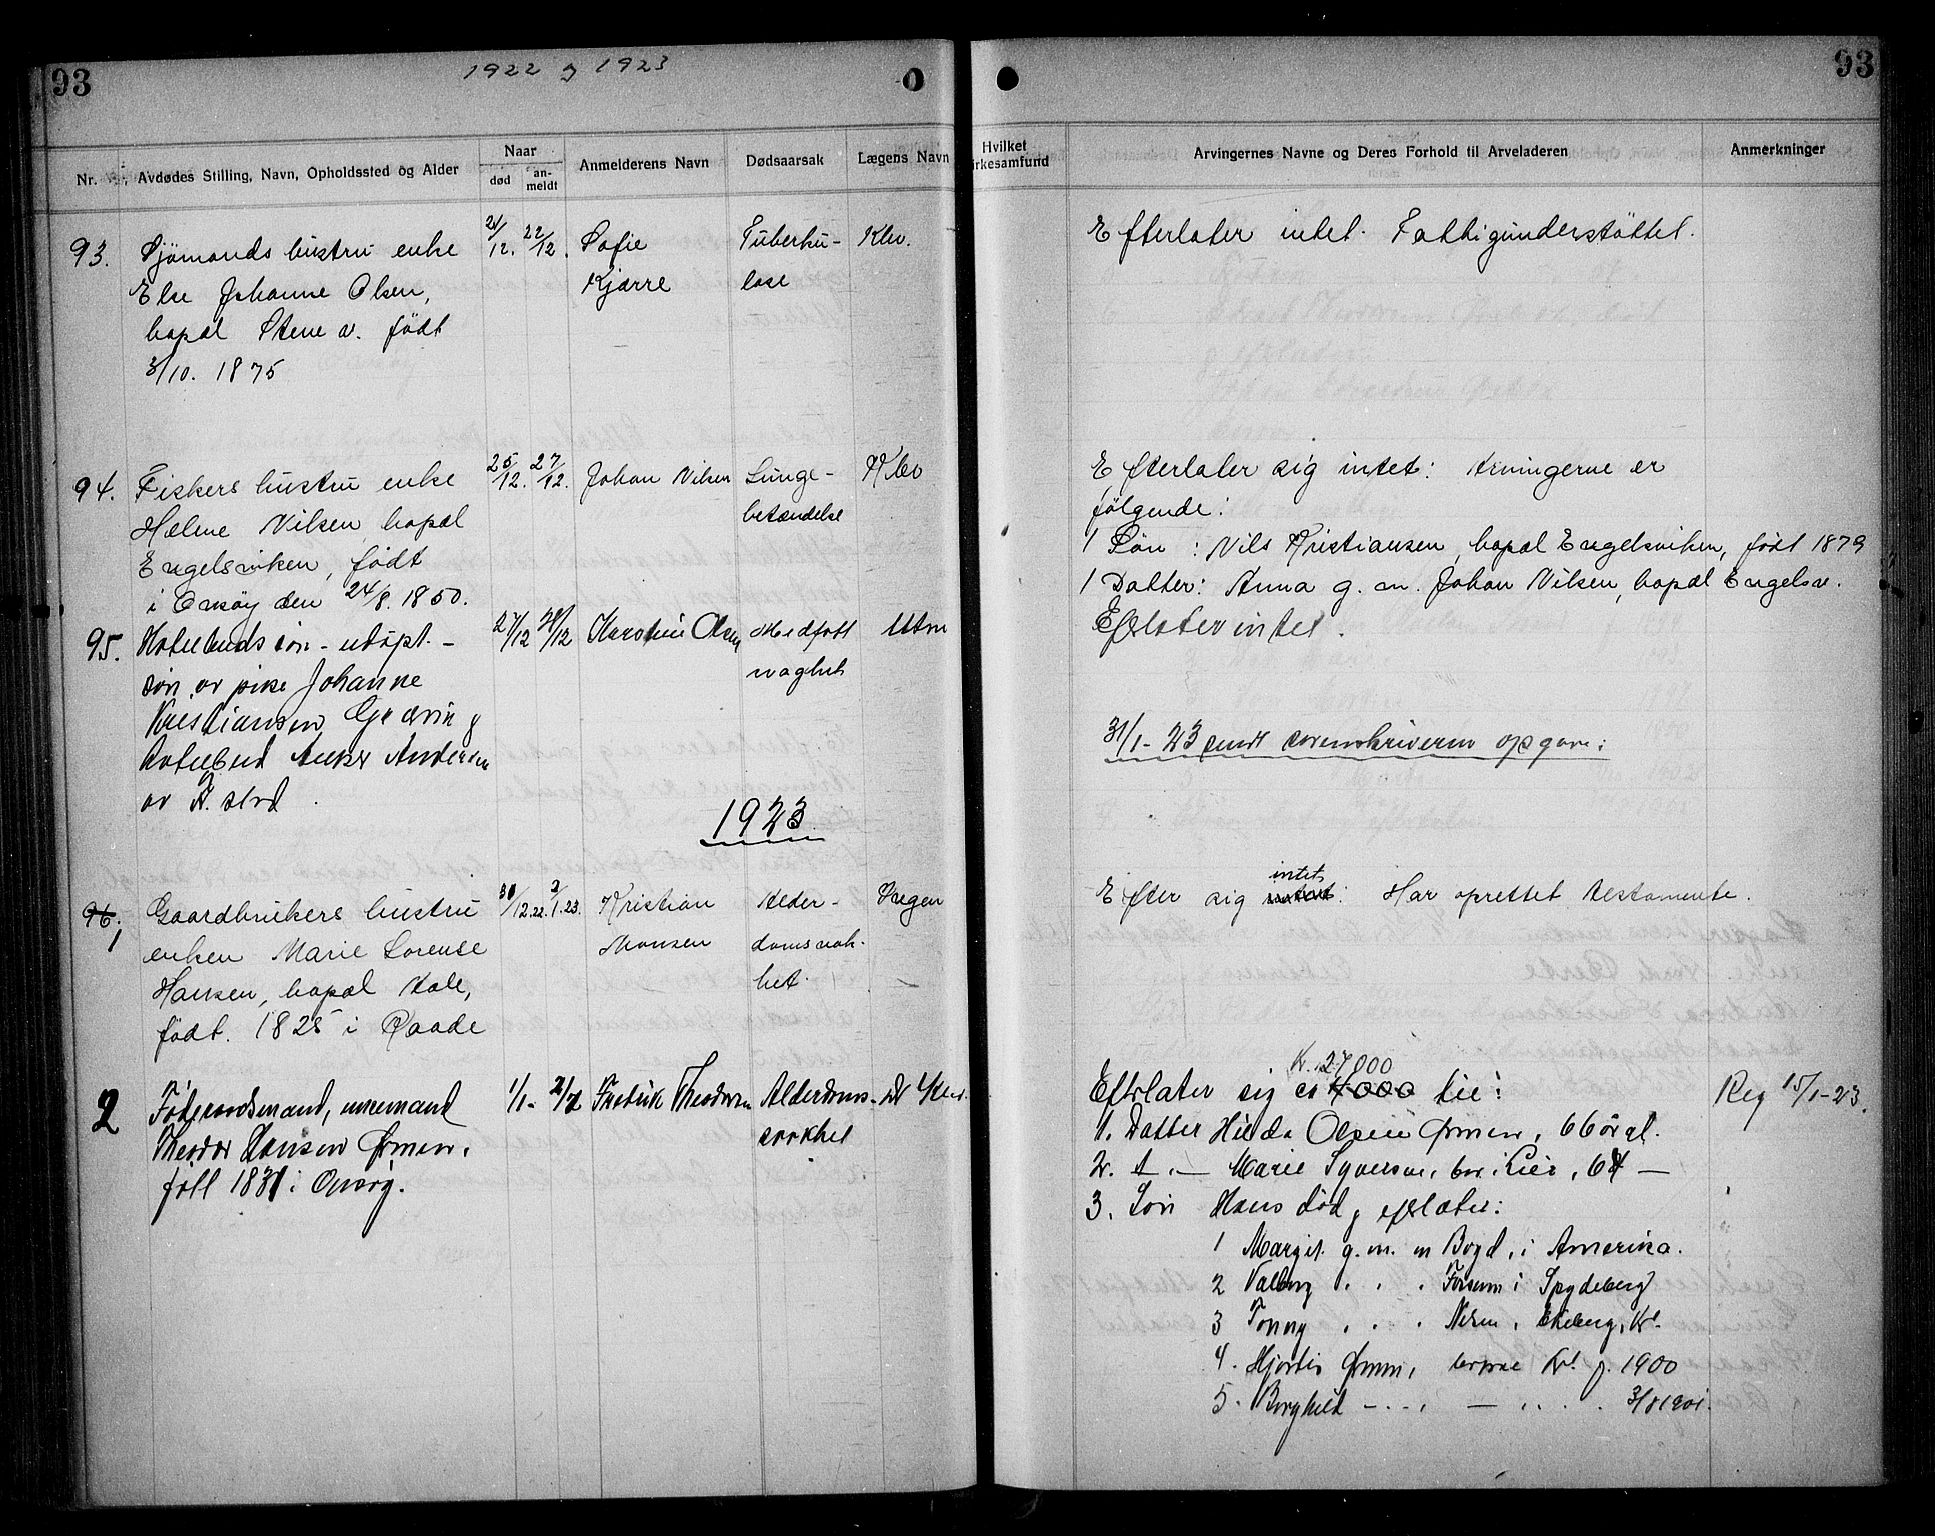 93
1922 og 1923
0
93
Nr. Avdødes Stilling, Navn, Opholdssted og Alder
Naar
død
an-
meldt
Anmelderens Navn
Dødsaarsak
Lægens Navn
Hvilket
irkesamfund
Arvingernes Navne og Deres Forhold til Arveladeren
Anmerkninger
93. Sjømands hustru enke
Else Johanne Olsen,
bopæl Stene ø. født
3/10. 1875
21/12. 22/12.
Sofie
Kjærre
Tuberku-
lose
Klev.
Efterlater intet. Fattigunderstøttet.
94. Fiskers hustru enke
Helene Nilsen, bopæl
Engelsviken, født
i Onsøy den 24/8. 1850.
25/12. 27/12.
Johan Nilsen
Lunge-
betændelse
Klev
Efterlater sig intet: Arvingerne er
følgende:
1 Søn : Nils Kristiansen, bopæl Engelsviken, født 1879
1 Datter: Anna g. m. Johan Nilsen, bopæl Engelsv.
95. Hotelbuds søn - udøpt -
søn av pike Johanne
Kristiansen Græsvik og
Hotelbud Anker Andersen
av F. stad
27/12 28/12
Olsen
Medfødt
svaghet
Efterlater intet.
31/1-23 sendt sorenskriveren opgave:
1923
96. 1
Gaardbrukers hustru
enken Marie Lorense
Hansen, bopæl Hole,
født. 1825 i Raade
30/12.22. 2/1.23.
Kristian
Monsen
Alder-
domsvak-
het.
Ingen
Efter sig intet: Har oprettet testamente.
2 Føderaadsmand, enkemand
Theodor Hansen Ørmen,
født 1831 i Onsøy.
1/1- 2/1
Fredrik Theodorsen
Alderdoms-
svakhet
Dr Klev.
Kr. 27000
Efterlater sig ca 4000 til:
Reg 15/1-23.
1. Datter Hilda Olsen Ørmen, 66 år gl.
2. d. — Marie Syversen, bor i Lier, 64 —
3. Søn Hans død, efterlater:
1 Margit g. m. en Boyd, i Amerika.
2 Valborg . . . Forsum i Spydeberg
3 Fonny . . . Nilsen, Ekeberg, Kr.
4. Hjørdis Ørmen, Kr. f. 1900
5. Borghild — . . , — . . . 3/8 1901.